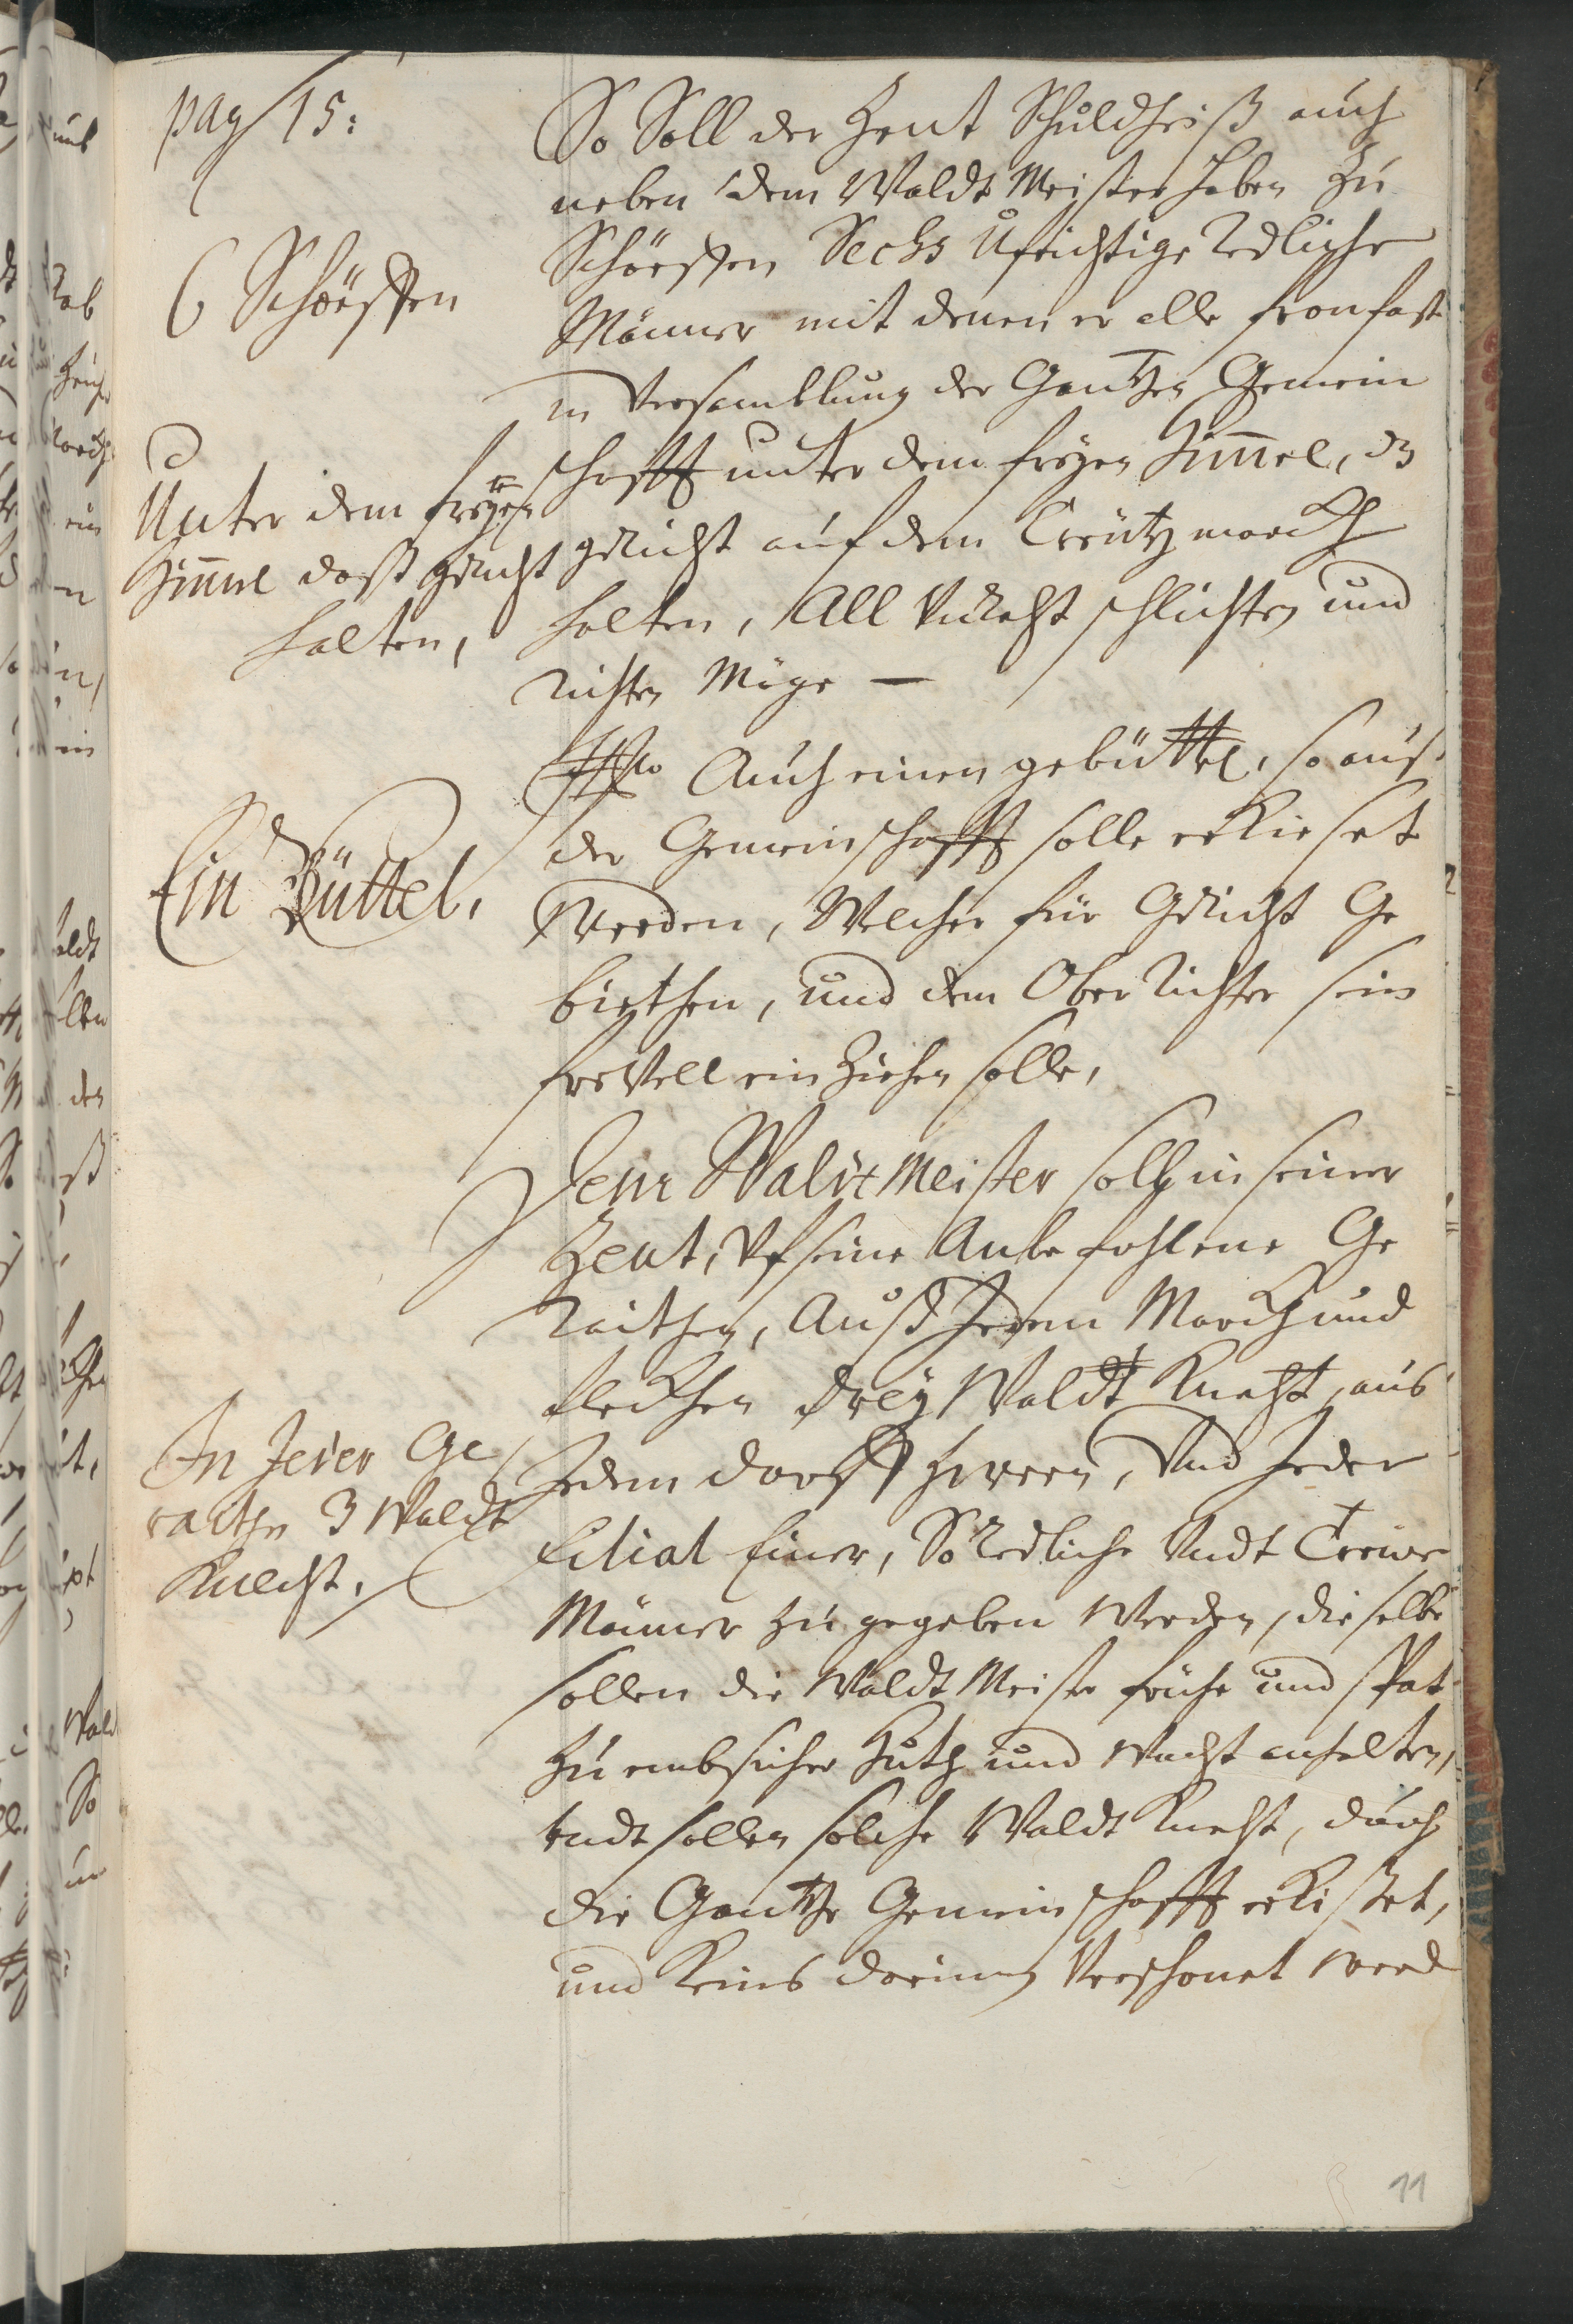 pag 15:
6 Schöeffen
Unter dem freyen
Himel daß gericht
halten,
Ein Büttel,
In Jeder Ge
raithn 3 Waldt
Knecht.
So Soll der Zent Schuldheiß auch
neben dem Waldt Meister haben zu
Schöeffen Sechs Ufrichtige Redliche
Männer mit denen er alle fronfast
in Versamblung der Gantzen Gemein
schafft unter dem freyen Himel, dz
gericht auf dem Creutzmarckh
halten, All Unrecht schlichten und
richten Möge —
Auch einen gebüttel, so aus
der Gemeinschafft solle erkieset
Werden, Welcher für Gericht Ge
biethen, und dem Ober Richter sein
freVell ein Ziehen solle,
Dem Waldt Meister soll in seiner
Zent, Uf seine Anbefohlene Ge
Raithen, Auß Jedem Marckh und
fleckhen drey Waldt Knecht, aus
Jedem dorff Zween, Und Jeder
Filial Einer, So Redliche Undt Trewe
Männer zu gegeben Werden, die selbe
sollen die Waldt Meister frühe und spat
zu embsicher Huth und Wacht anhalten,
undt sollen solche Waldt Knecht, durch
die Gantze Gemeinschafft erkißet,
und Keins darinen Verschonet werd
11